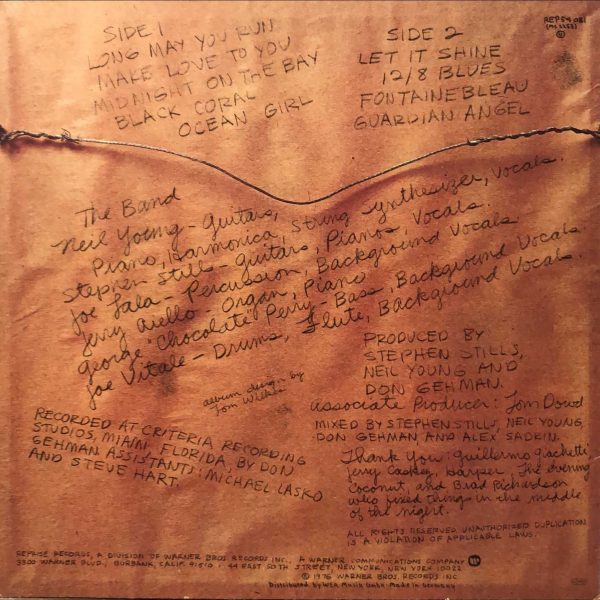 REP 54 081
(MS 2253)
SIDE 1
LONG MAY YOU RUN
MAKE LOVE TO YOU
MIDNIGHT ON THE BAY
BLACK CORAL
OCEAN GIRL
SIDE 2
LET IT SHINE
12/8 BLUES
FONTAINEBLEAU
GUARDIAN ANGEL
The Band
Neil Young - Guitars,
Piano, Harmonica, String Synthesizer, Vocals.
Stephen Still - Guitars, Pianos, Vocals.
Joe Lala - Percussion, Background Vocals
Jerry Aiello - Organ, Piano
George "Chocolate" Perry - Bass, Background Vocals
Joe Vitale - Drums, Flute, Background Vocals.
album design by
Tom Wilkes
RECORDED AT CRITERIA RECORDING
STUDIOS, MIAMI FLORIDA, BY DON
GEHMAN ASSISTANTS: MICHAEL LASKO
AND STEVE HART.
PRODUCED BY
STEPHEN STILLS,
NEIL YOUNG AND
DON GEHMAN.
Associate Producer: Tom Dowd
MIXED BY STEPHEN STILLS, NEIL YOUNG,
DON GEHMAN AND ALEX SADKIN.
Thank You: Guillermo Giachetti
Jerry Caskey, Harper, The evening
Coconut, and Brad Richardson
who fixed things in the middle
of the night.
ALL RIGHTS RESERVED UNAUTHORIZED DUPLICATION
IS A VIOLATION OF APPLICABLE LAWS.
REPRISE RECORDS, A DIVISION OF WARNER BROS RECORDS INC., A WARNER COMMUNICATIONS COMPANY
3300 WARNER BLVD., BURBANK, CALIF. 91510 · 44 EAST 50TH STREET, NEW YORK, NEW YORK 10022
© 1976 WARNER BROS. RECORDS INC
Distributed by WEA Musik GmbH. Made in Germany